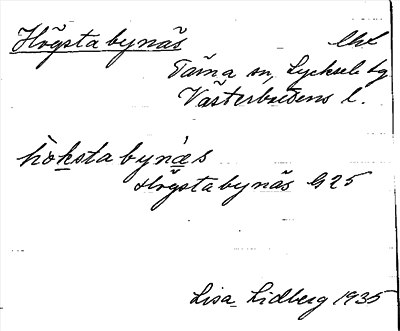 Högsta bynäs lhl
Tärna sn, Lycksele lg
Västerbottens l.
hòksta bynǽs
Högsta bynäs G 25
Lisa Lidberg 1935